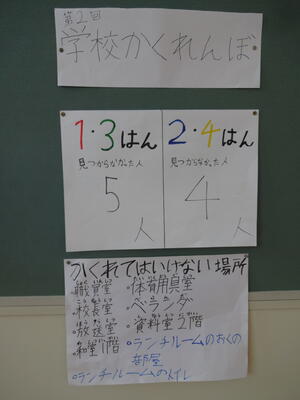 第2回
学校かくれんぼ
1・3はん
見つからなかった人
5人
2・4はん
見つからなかった人
4人
かくれてはいけない場所
・職員室
・校長室
・放送室
・和室1階
・ランチルームのトイレ
・体育用具室
・ベランダ
・資料室2階
・ランチルームのおくの
部屋